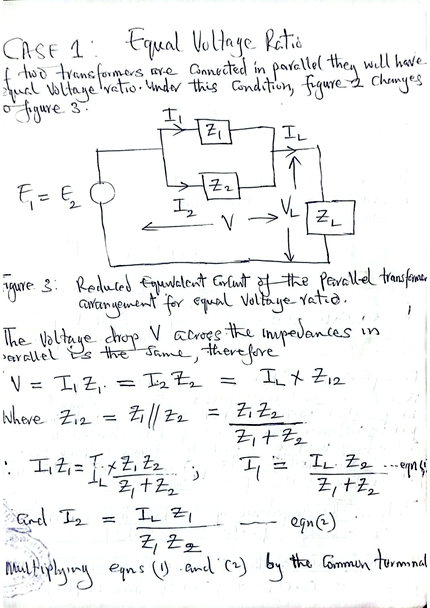 CASE 1: Equal Voltage Ratio
f two transformers are Connected in parallel they will have
equal Voltage ratio. Under this Condition, figure 2 Changes
o figure 3.
I1 Z1 IL
Z2
E1 = E2 I2 V VL ZL
igure 3: Reduced Equivalent Circuit of the Parallel transformer
arrangement for equal Voltage ratio.
The Voltage drop V across the impedances in
parallel is the same, therefore
V = I1 Z1 = I2 Z2 = IL x Z12
Where Z12 = Z1 // Z2 = Z1 Z2 / Z1 + Z2
: I1 Z1 = IL x Z1 Z2 / Z1 + Z2 ; I1 = IL Z2 / Z1 + Z2 --- eqn(1
and I2 = IL Z1 / Z1 Z2 — eqn(2)
Multiplying eqns (1) and (2) by the Common terminal